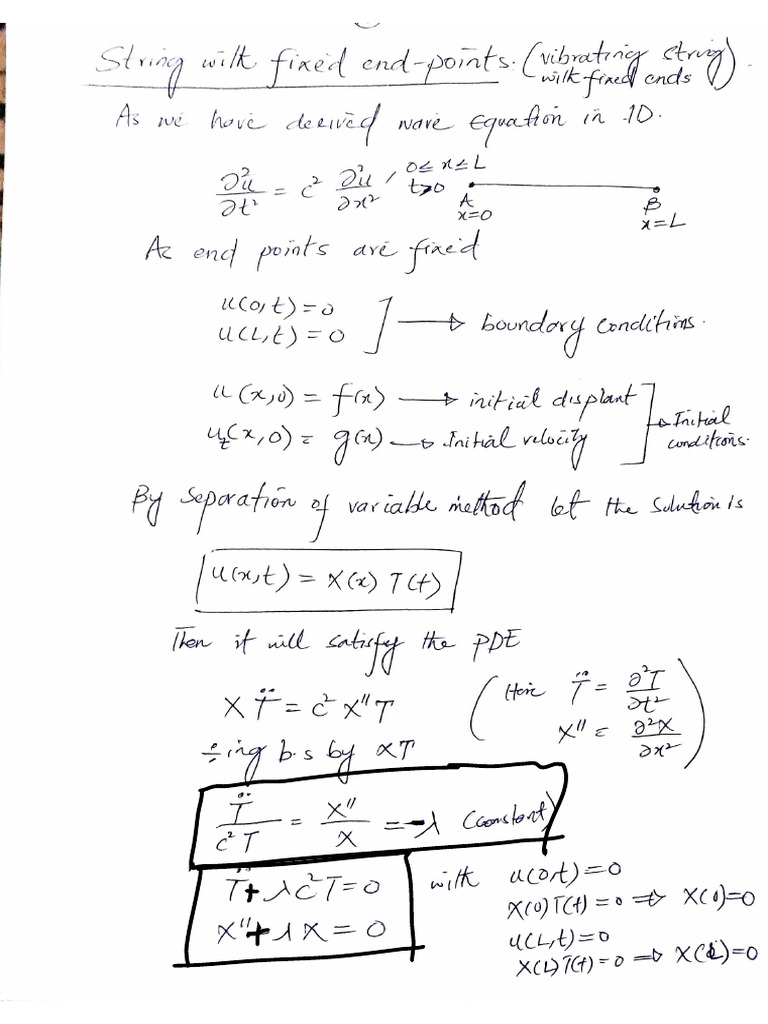 String with fixed end-points. (vibrating string with fixed ends)
As we have derived wave Equation in 1D.
∂²u/∂t² = c² ∂²u/∂x² , 0≤x≤L t>0
A x=0
B x=L
As end points are fixed
u(0,t)=0
u(L,t)=0 → boundary conditions.
u(x,0) = f(x) → initial displant
u_t(x,0) = g(x) → Initial velocity
→ Initial conditions.
By separation of variable method let the solution is
u(x,t) = X(x) T(t)
Then it will satisfy the PDE
X T̈ = c² X'' T
(Here T̈ = ∂²T/∂t²
X'' = ∂²X/∂x²)
÷ing b.s by XT
T̈/c²T = X''/X = -λ (constant)
T̈ + λc²T = 0
X'' + λX = 0
with u(0,t)=0
X(0)T(t) = 0 ⇒ X(0)=0
u(L,t)=0
X(L)T(t)=0 ⇒ X(L)=0